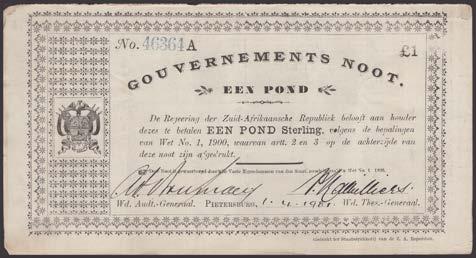 No. 46364 A
£1
GOUVERNEMENTS NOOT.
EEN POND
De Regeering der Zuid-Afrikaansche Republiek belooft aan houder
dezes te betalen EEN POND Sterling, volgens de bepalingen
van Wet No. 1, 1900, waarvan artt. 2 en 3 op de achterzijde van
deze noot zijn afgedrukt.
Deze Noot is gewaarborgd door alle Vaste Eigendommen van den Staat
Wd. Audt.-Generaal. PIETERSBURG, 1.4.1901. Wd. Thes.-Generaal.
Gedrukt ter Staatsdrukkerij van de Z. A. Republiek.